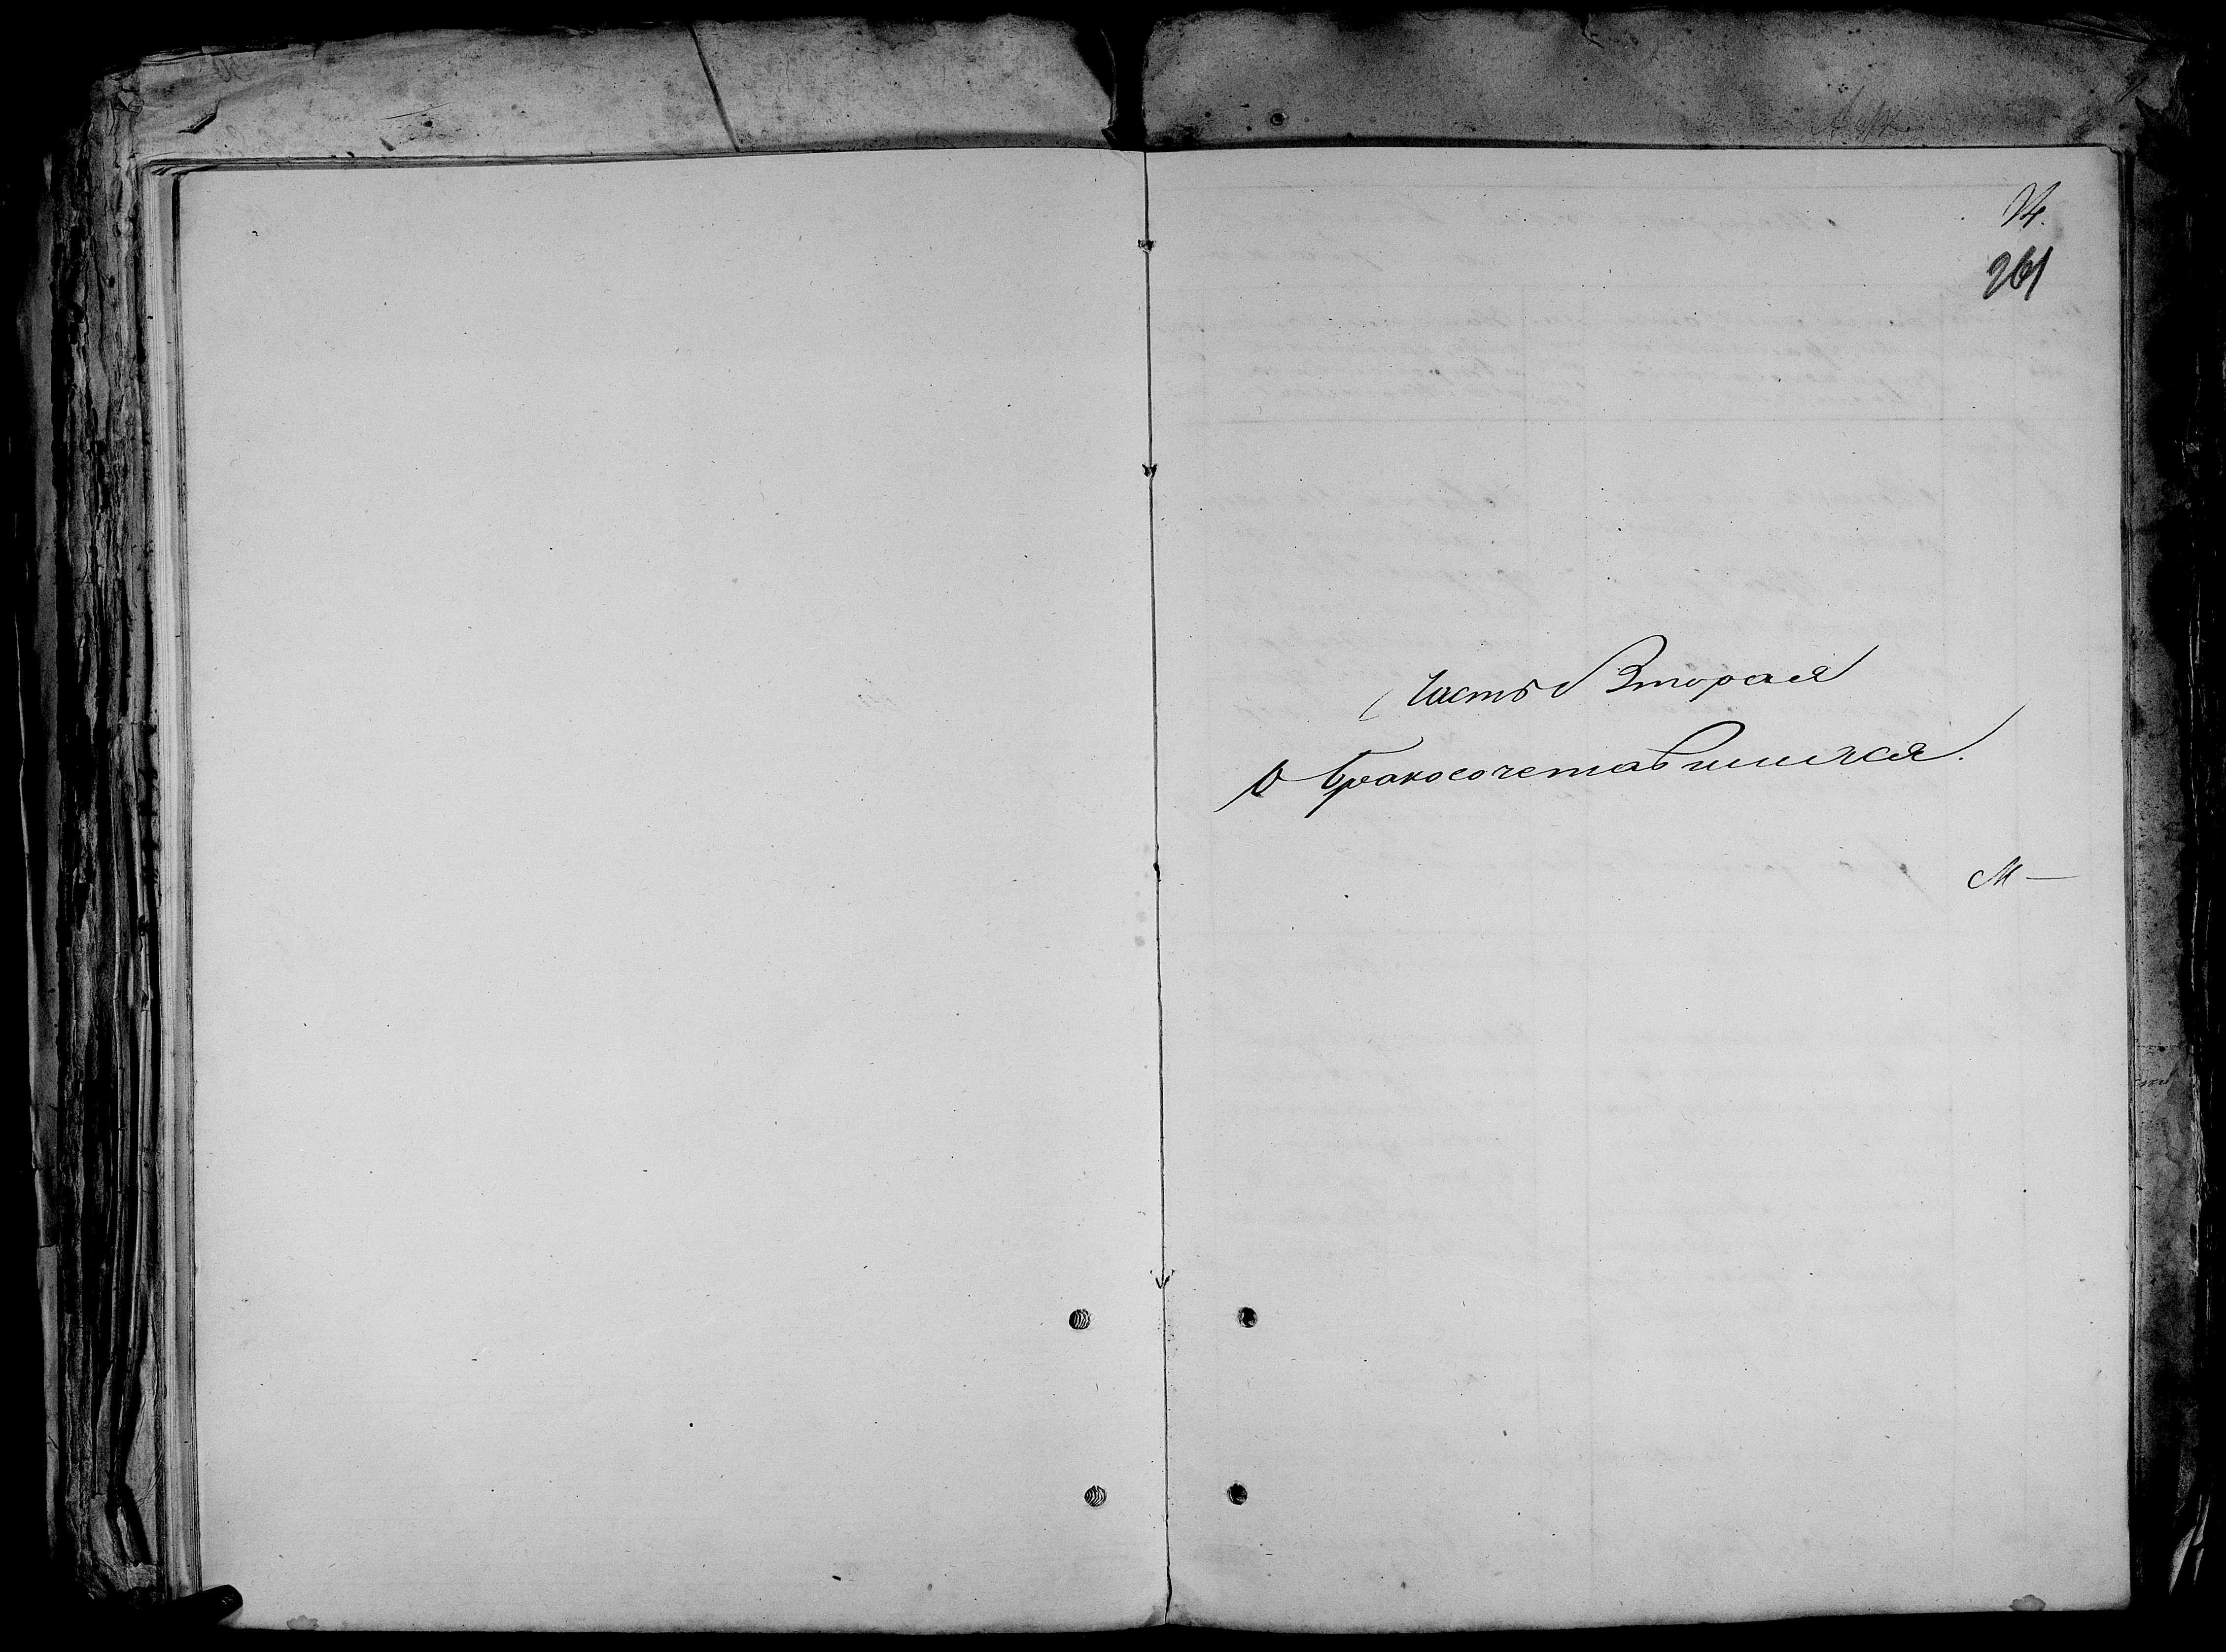 261
Часть Вторая
О бракосочетавшихся.
М —